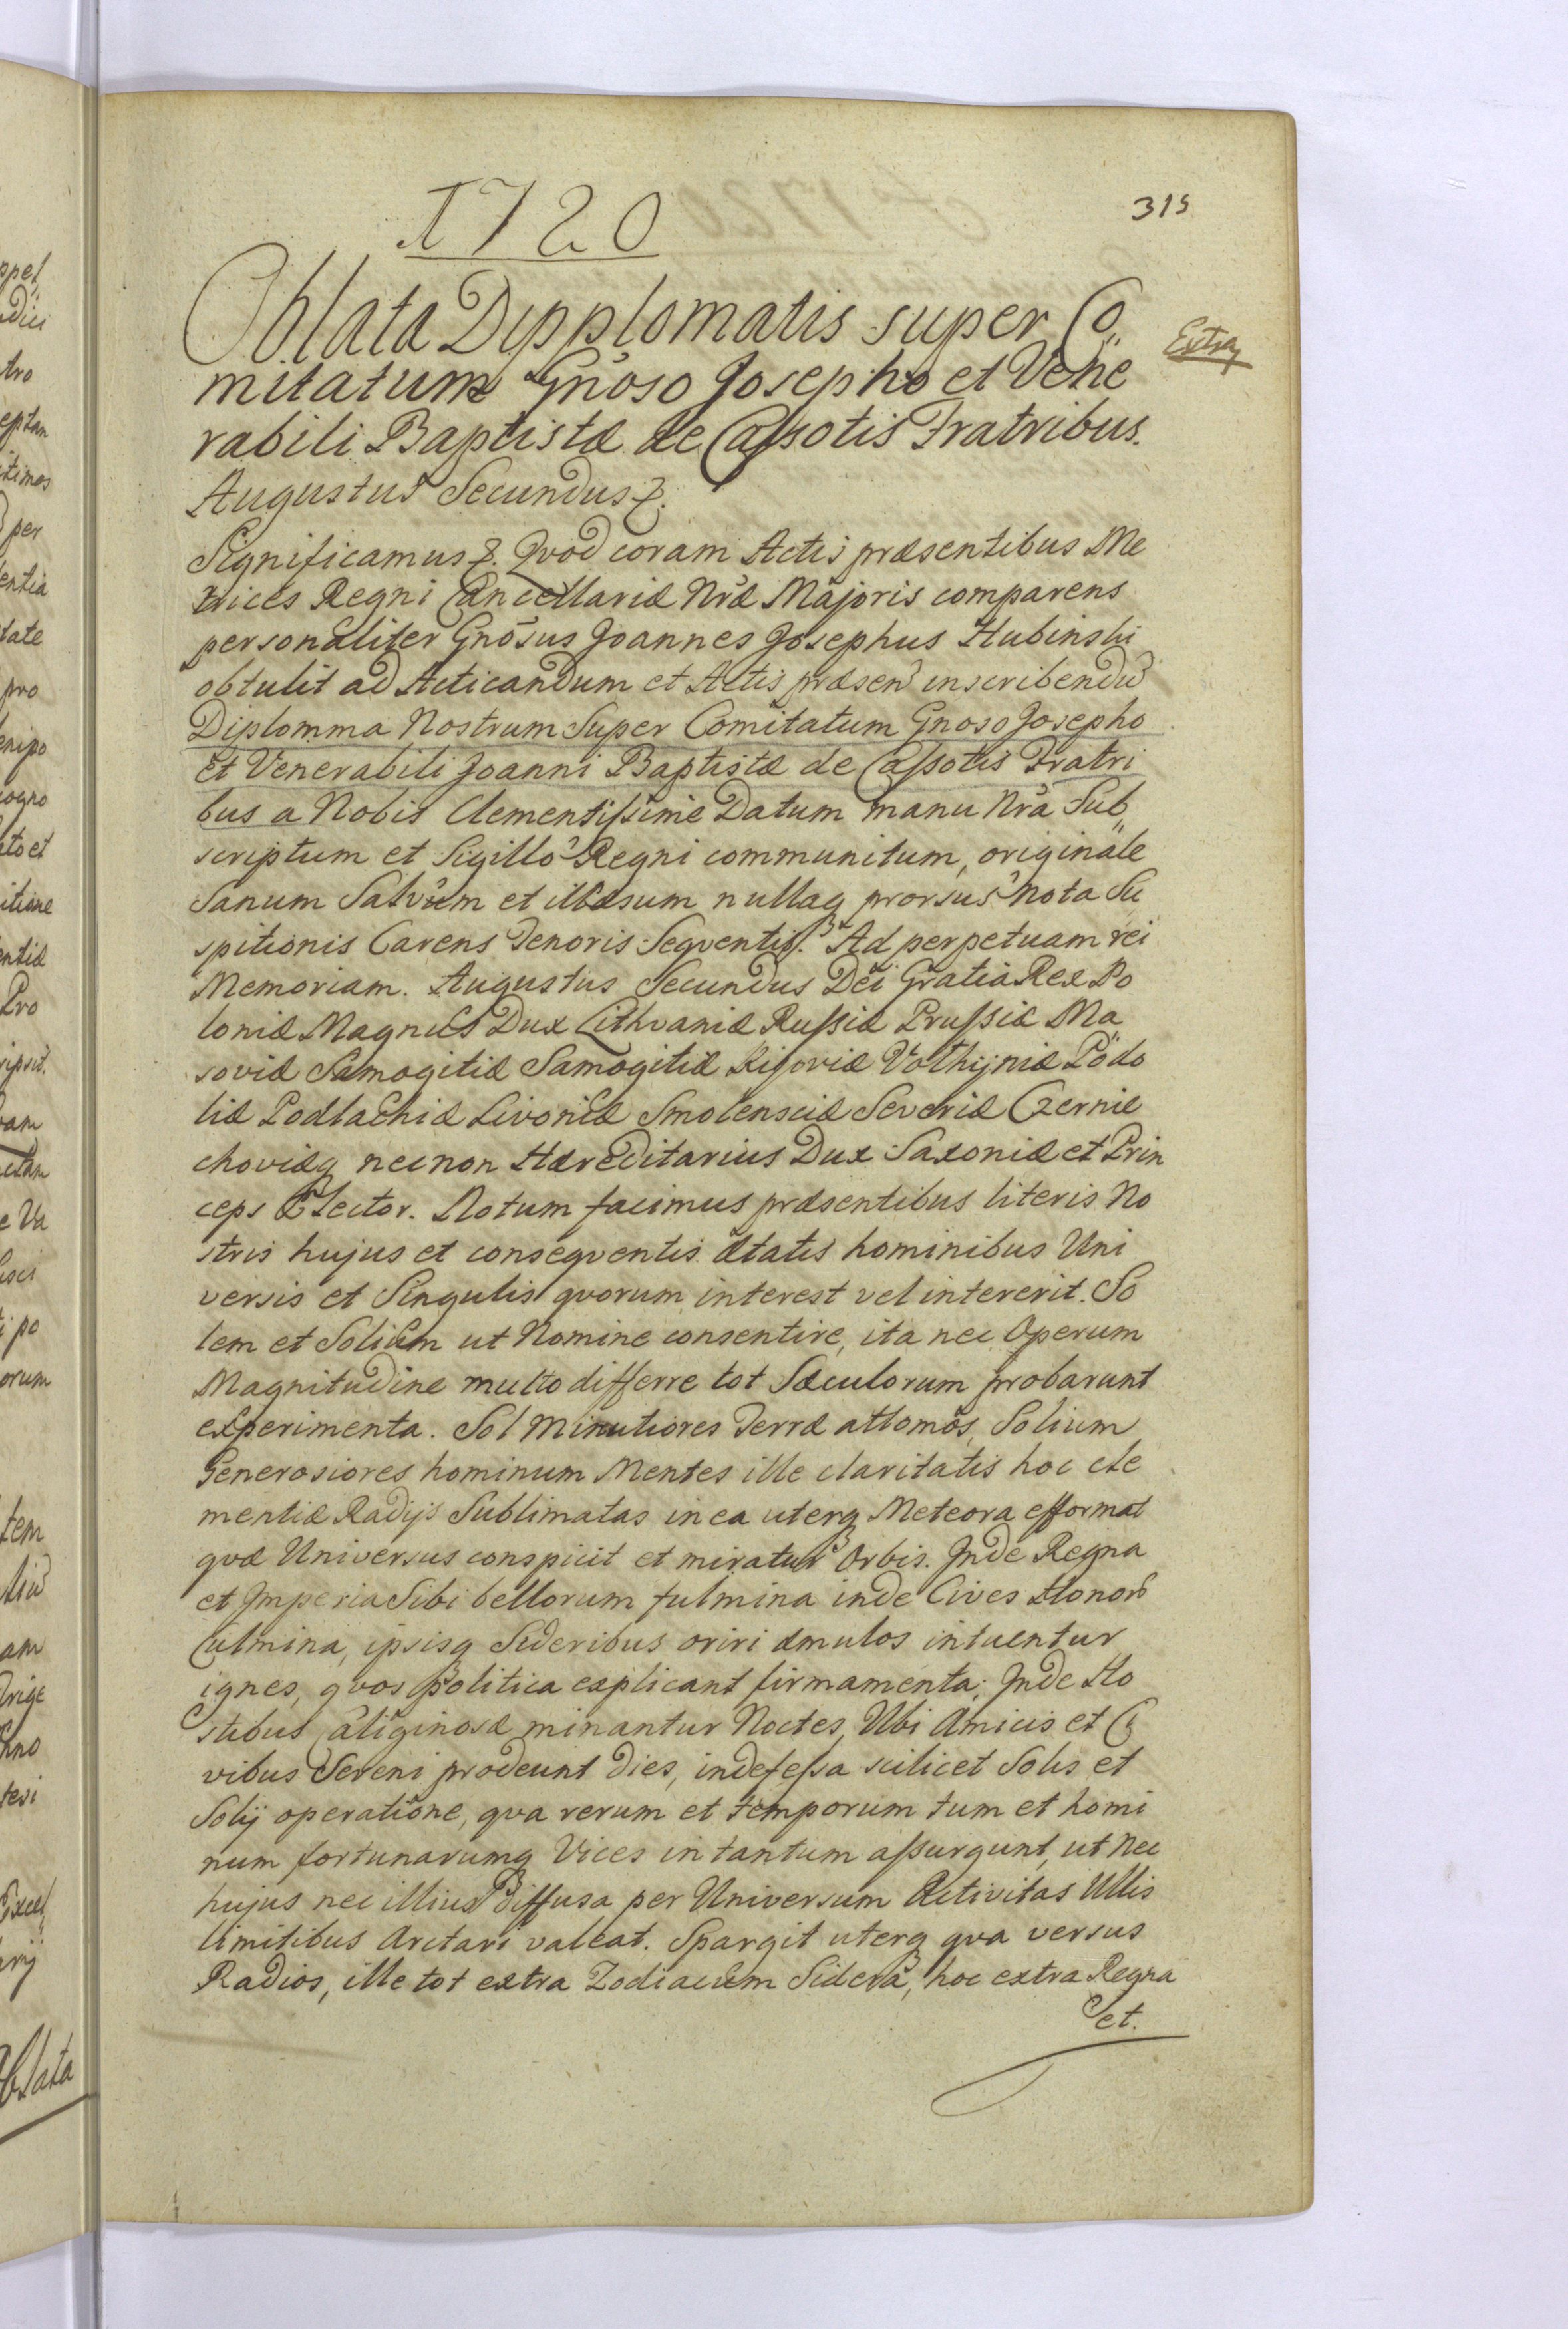 1720
315
Oblata Dipplomatis super Co„
mitatum Gnoso Josepho et Vene
rabili Baptistæ de Cassotis Fratribus.
Extra
Augustus Secundus &.
Significamus &. Qvod coram Actis præsentibus Me
trices Regni Cancellariæ Nræ Majoris comparens
personaliter Gnosus Joannes Josephus Hubinski
obtulit ad Acticandum et Actis præsen inscribendu
Diplomma Nostrum Super Comitatum Gnoso Josepho
et Venerabili Joanni Baptistæ de Cassotis Fratri
bus a Nobis Clementissime Datum manu Nra Sub„
scriptum et Sigillo Regni communitum, originale
Sanum Salvum et illæsum nullaq prorsus nota Su
spitionis Carens Tenoris Seqventis. Ad perpetuam rei
Memoriam. Augustus Secundus Dei Gratia Rex Po
loniæ Magnus Dux Lithvaniæ Russiæ Prussiæ Ma„
soviæ Samogitiæ Samogitiæ Kijoviæ Volhijniæ Podo
liæ Podlachiæ Livoniæ Smolensciæ Severiæ Czernie
choviæq necnon Hæreditarius Dux Saxoniæ et Prin
ceps Elector. Notum facimus præsentibus literis No
stris hujus et conseqventis ætatis hominibus Uni
versis et Singulis qvorum interest vel intererit. So
lem et Solium ut Nomine consentire, ita nec Operum
Magnitudine multo differre tot Sæculorum probarunt
experimenta. Sol Minutiores Terræ attomos, Solium
Generosiores hominum Mentes ille claritatis hoc cle
mentiæ Radijs Sublimatas in ea uterq Meteora efformat
qvæ Universus conspicit et miratur Orbis. Jnde Regna
et Jmperia Sibi bellorum fulmina inde Cives Honorũ
Culmina, ipsisq Sideribus oriri æmulos intuentur
ignes, qvos Politica explicant firmamenta; Jnde Ho
stibus Caliginosæ minantur Noctes, Ubi Amicis et Ci
vibus Sereni prodeunt Dies, indefessa scilicet Solis et
Solij operatione, qva rerum et temporum tum et homi
num fortunarumq Vices in tantum assurgunt, ut nec
hujus nec illius diffusa per Universum Activitas Ullis
limitibus Arctari valeat. Spargit uterq qva versus
Radios, ille tot extra Zodiacum Sidera, hoc extra Regna
et.